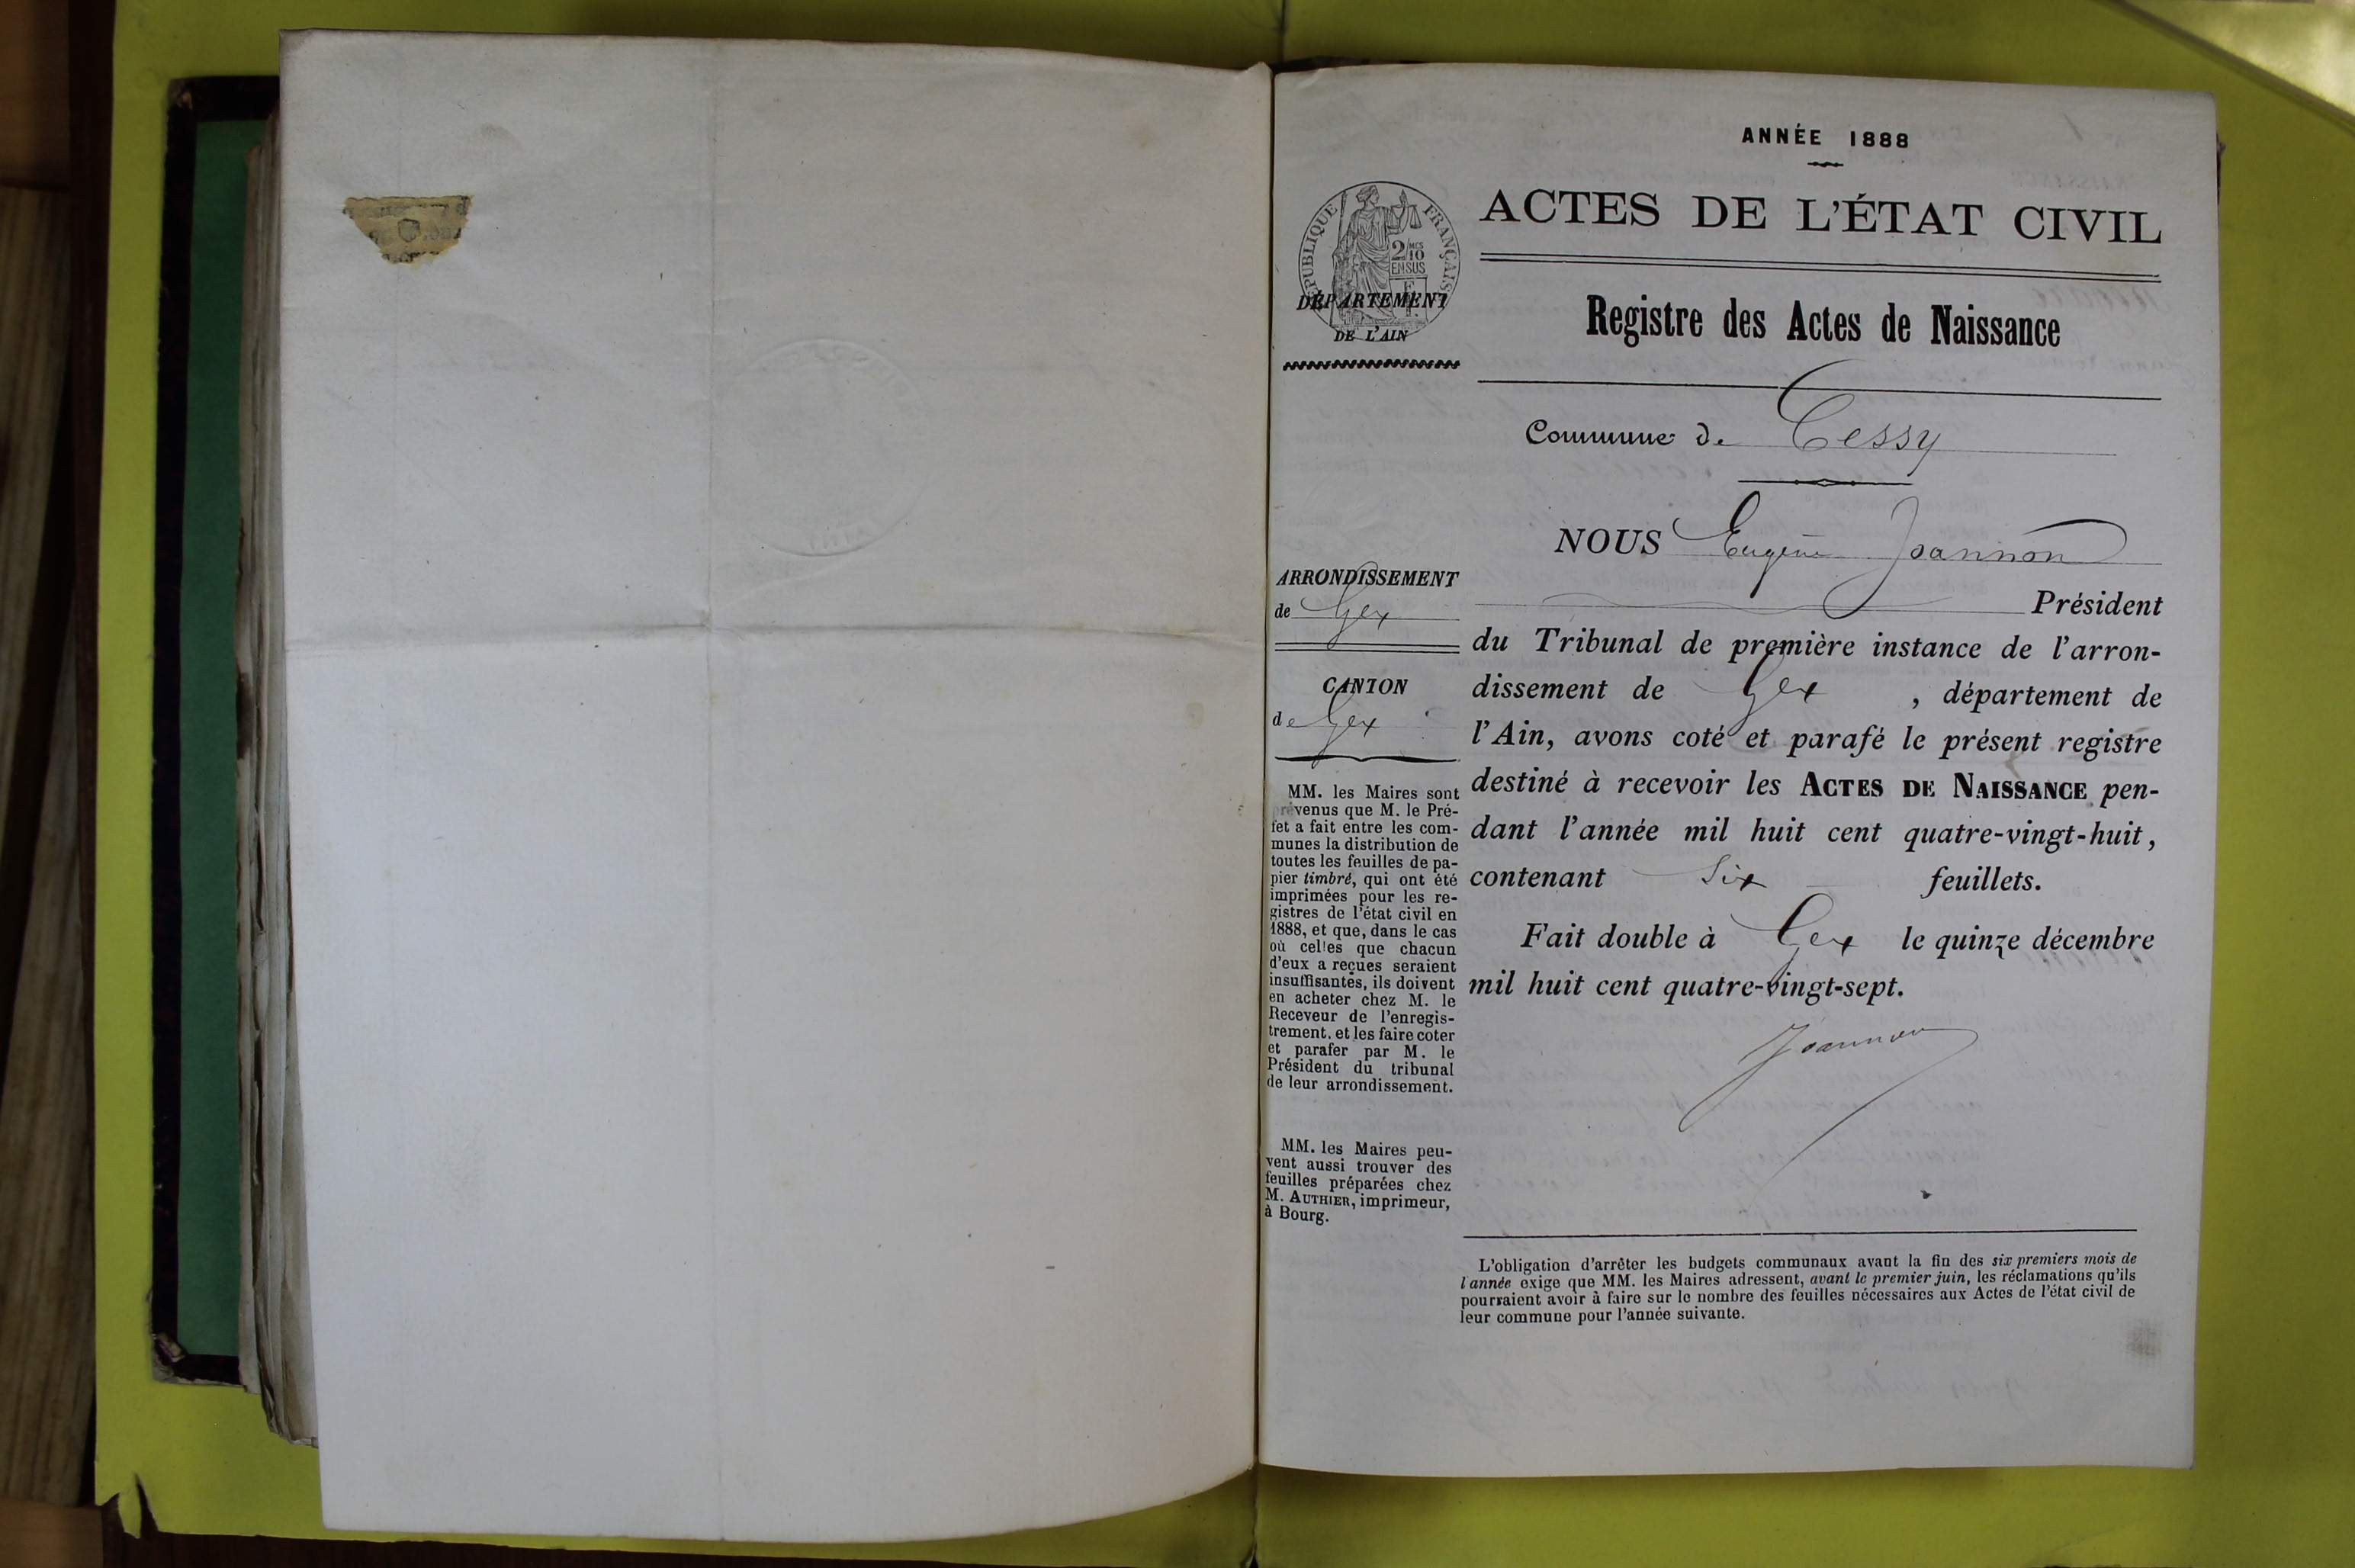 ANNÉE 1888
ACTES DE L'ÉTAT CIVIL
RÉPUBLIQUE FRANÇAISE
2/10
MES
EN SUS
DÉPARTEMENT
DE L'AIN
Registre des Actes de Naissance
Commune de Cessy
NOUS Eugène Joannon
Président
du Tribunal de première instance de l'arron-
dissement de Gex , département de
l'Ain, avons coté et parafé le présent registre
destiné à recevoir les ACTES DE NAISSANCE pen-
dant l'année mil huit cent quatre-vingt-huit,
contenant Six feuillets.
Fait double à Gex le quinze décembre
mil huit cent quatre-vingt-sept.
Joannon
ARRONDISSEMENT
de Gex
CANTON
de Gex
MM. les Maires sont
prévenus que M. le Pré-
fet a fait entre les com-
munes la distribution de
toutes les feuilles de pa-
pier timbré, qui ont été
imprimées pour les re-
gistres de l'état civil en
1888, et que, dans le cas
où celles que chacun
d'eux a reçues seraient
insuffisantes, ils doivent
en acheter chez M. le
Receveur de l'enregis-
trement, et les faire coter
et parafer par M. le
Président du tribunal
de leur arrondissement.
MM. les Maires peu-
vent aussi trouver des
feuilles préparées chez
M. AUTHIER, imprimeur,
à Bourg.
L'obligation d'arrêter les budgets communaux avant la fin des six premiers mois de
l'année exige que MM. les Maires adressent, avant le premier juin, les réclamations qu'ils
pourraient avoir à faire sur le nombre des feuilles nécessaires aux Actes de l'état civil de
leur commune pour l'année suivante.